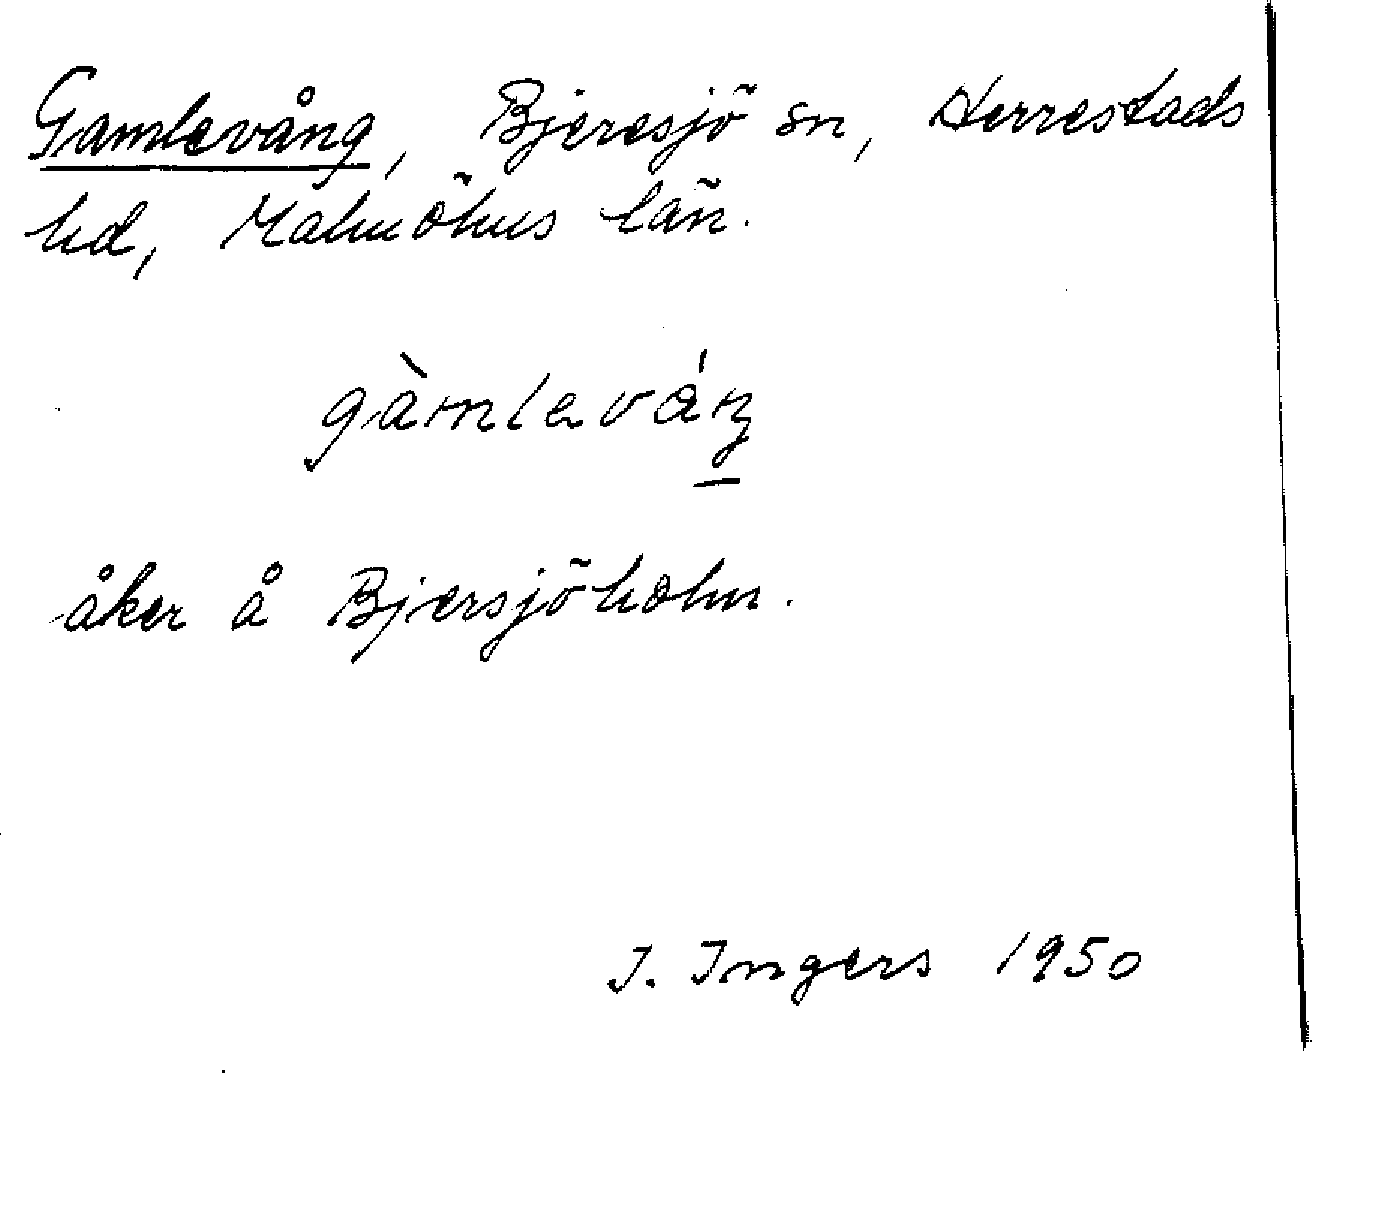 Gamlevång, Bjeresjö sn, Herrestads
hd, Malmöhus län.
gàmleváŋ
åker å Bjersjöholm.
I. Ingers 1950